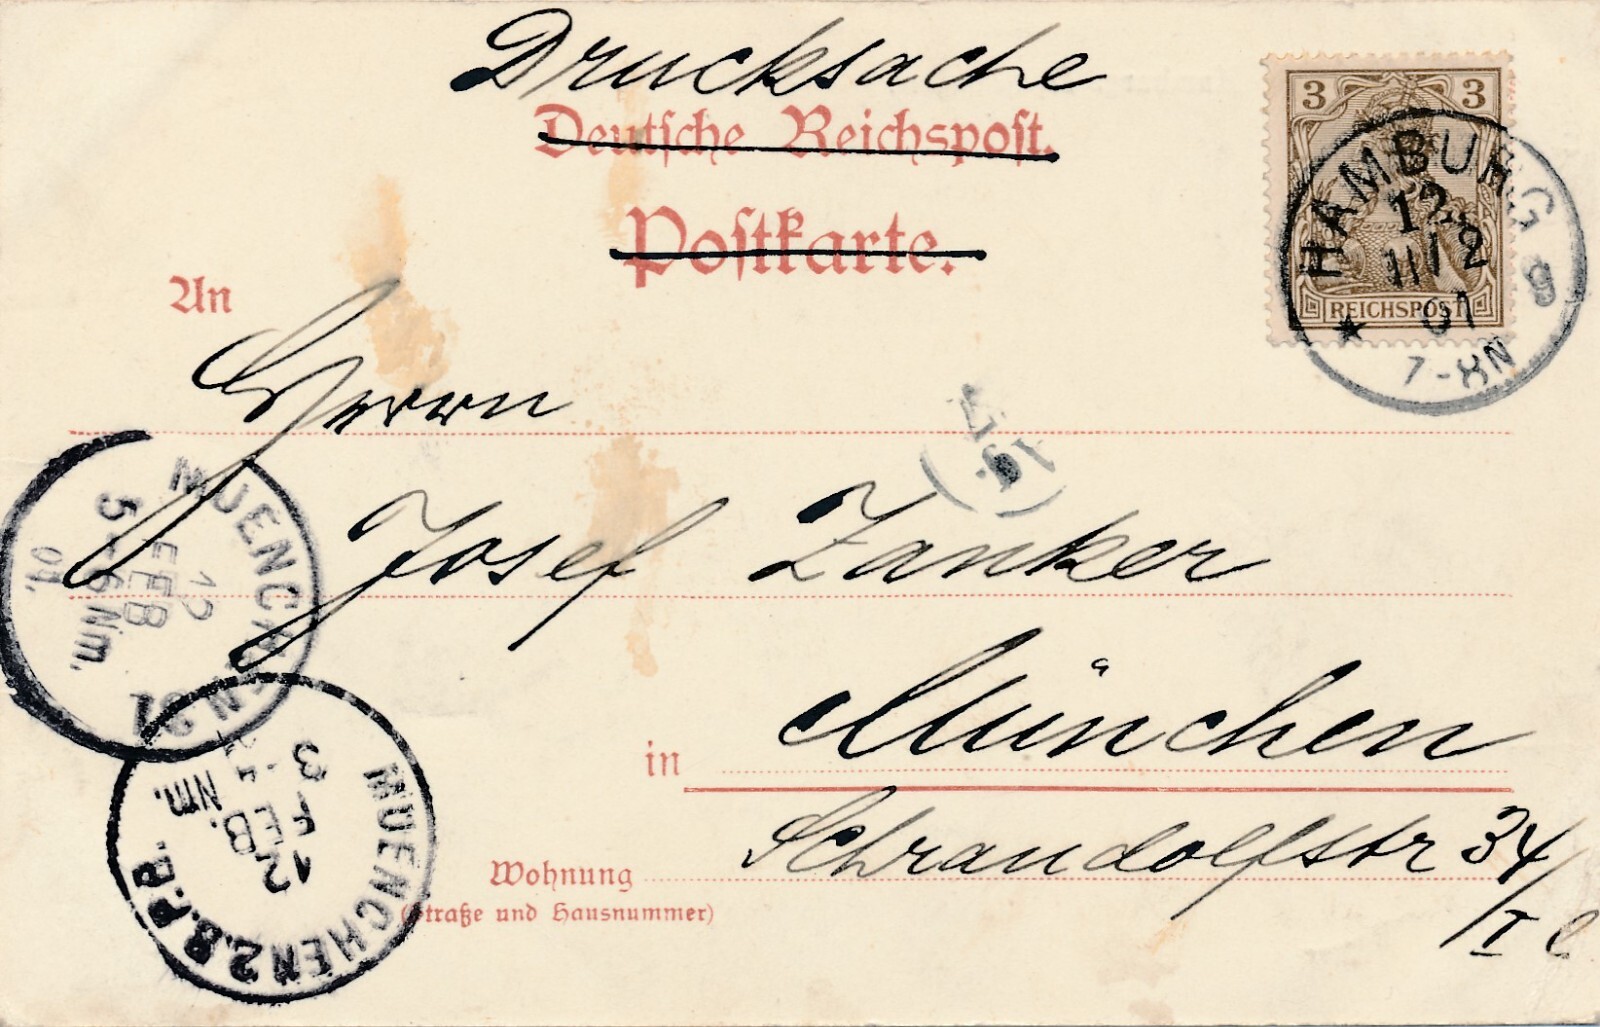 Drucksache
Deutsche Reichspost.
Postkarte.
3 3
REICHSPOST
HAMBURG 8
12
11/2
01
7-8N
An
Herrn
Josef Zanker
in München
Wohnung Schraudolfstr 34/I l
(Straße und Hausnummer)
MUENCHEN
12
FEB
5-6 Nm.
01.
MUENCHEN 2.B.P.B.
12
FEB.
Nm.